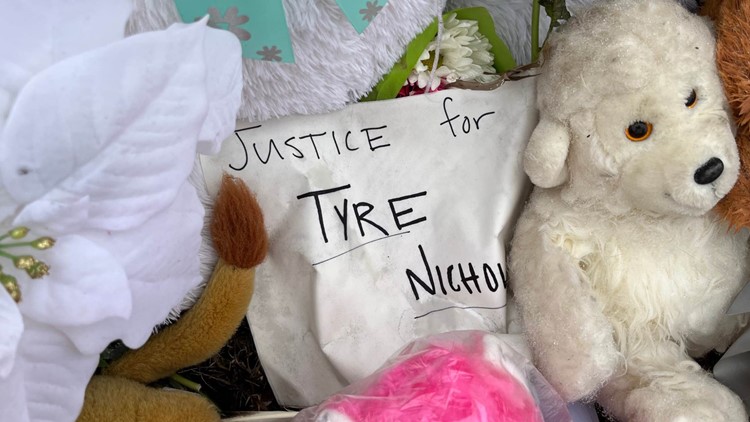 JUSTICE for
TYRE
NICHO